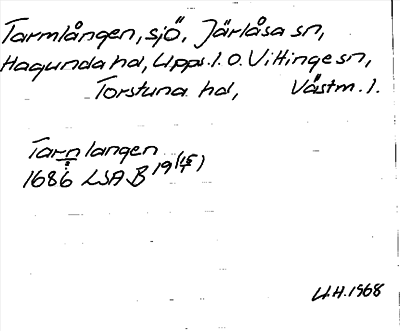 Tarmlången, sjö, Järlåsa sn,
Hagunda hd, Uppl. l. o. Vittinge sn,
Torstuna hd, Västm. l.
Tarnlangen
1686 LSA B 19 (15/1)
U.H. 1968